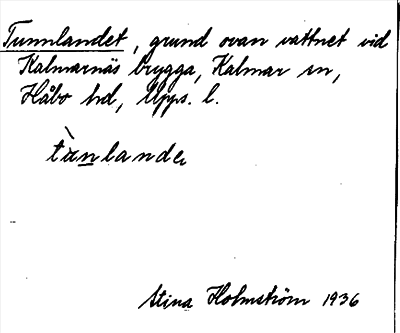 Tunnlandet, grund ovan vattnet vid
Kalmarnäs brygga, Kalmar sn,
Håbo hd, Upps. l.
tànlandeₑ
Stina Holmström 1936